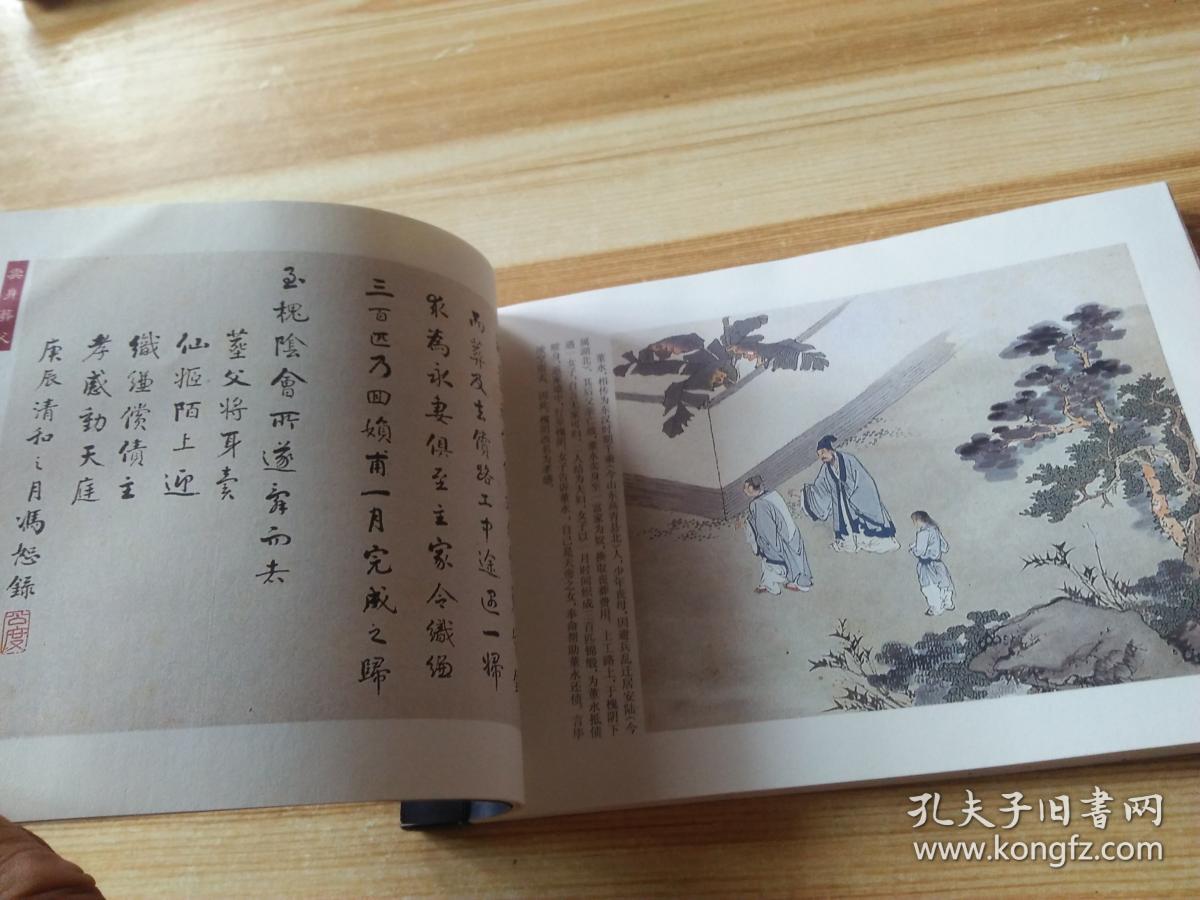 賣身葬父
而葬及去償路工中途遇一婦
求為永妻俱至主家令織縑
三百匹乃回媍甫一月完成之歸
至槐陰會所遂辭而去
葬父將身賣
仙姬陌上迎
織縑償債主
孝感動天庭
庚辰清和之月馮恕錄
公度
董永,相传为东汉时期千乘(今山东高青县北)人,少年丧母,因避兵乱迁居安陆(今
属湖北)。其后父亲亡故,董永卖身至一富家为奴,换取丧葬费用。上工路上,于槐阴下
遇一女子,自言无家可归,二人结为夫妇。女子以一月时间织成三百匹锦缎,为董永抵债
赎身,返家途中,行至槐阴,女子告诉董永:自己是天帝之女,奉命帮助董永还债。言毕
凌空而去。因此,槐阴改名为孝感。
孔夫子旧書网
www.kongfz.com